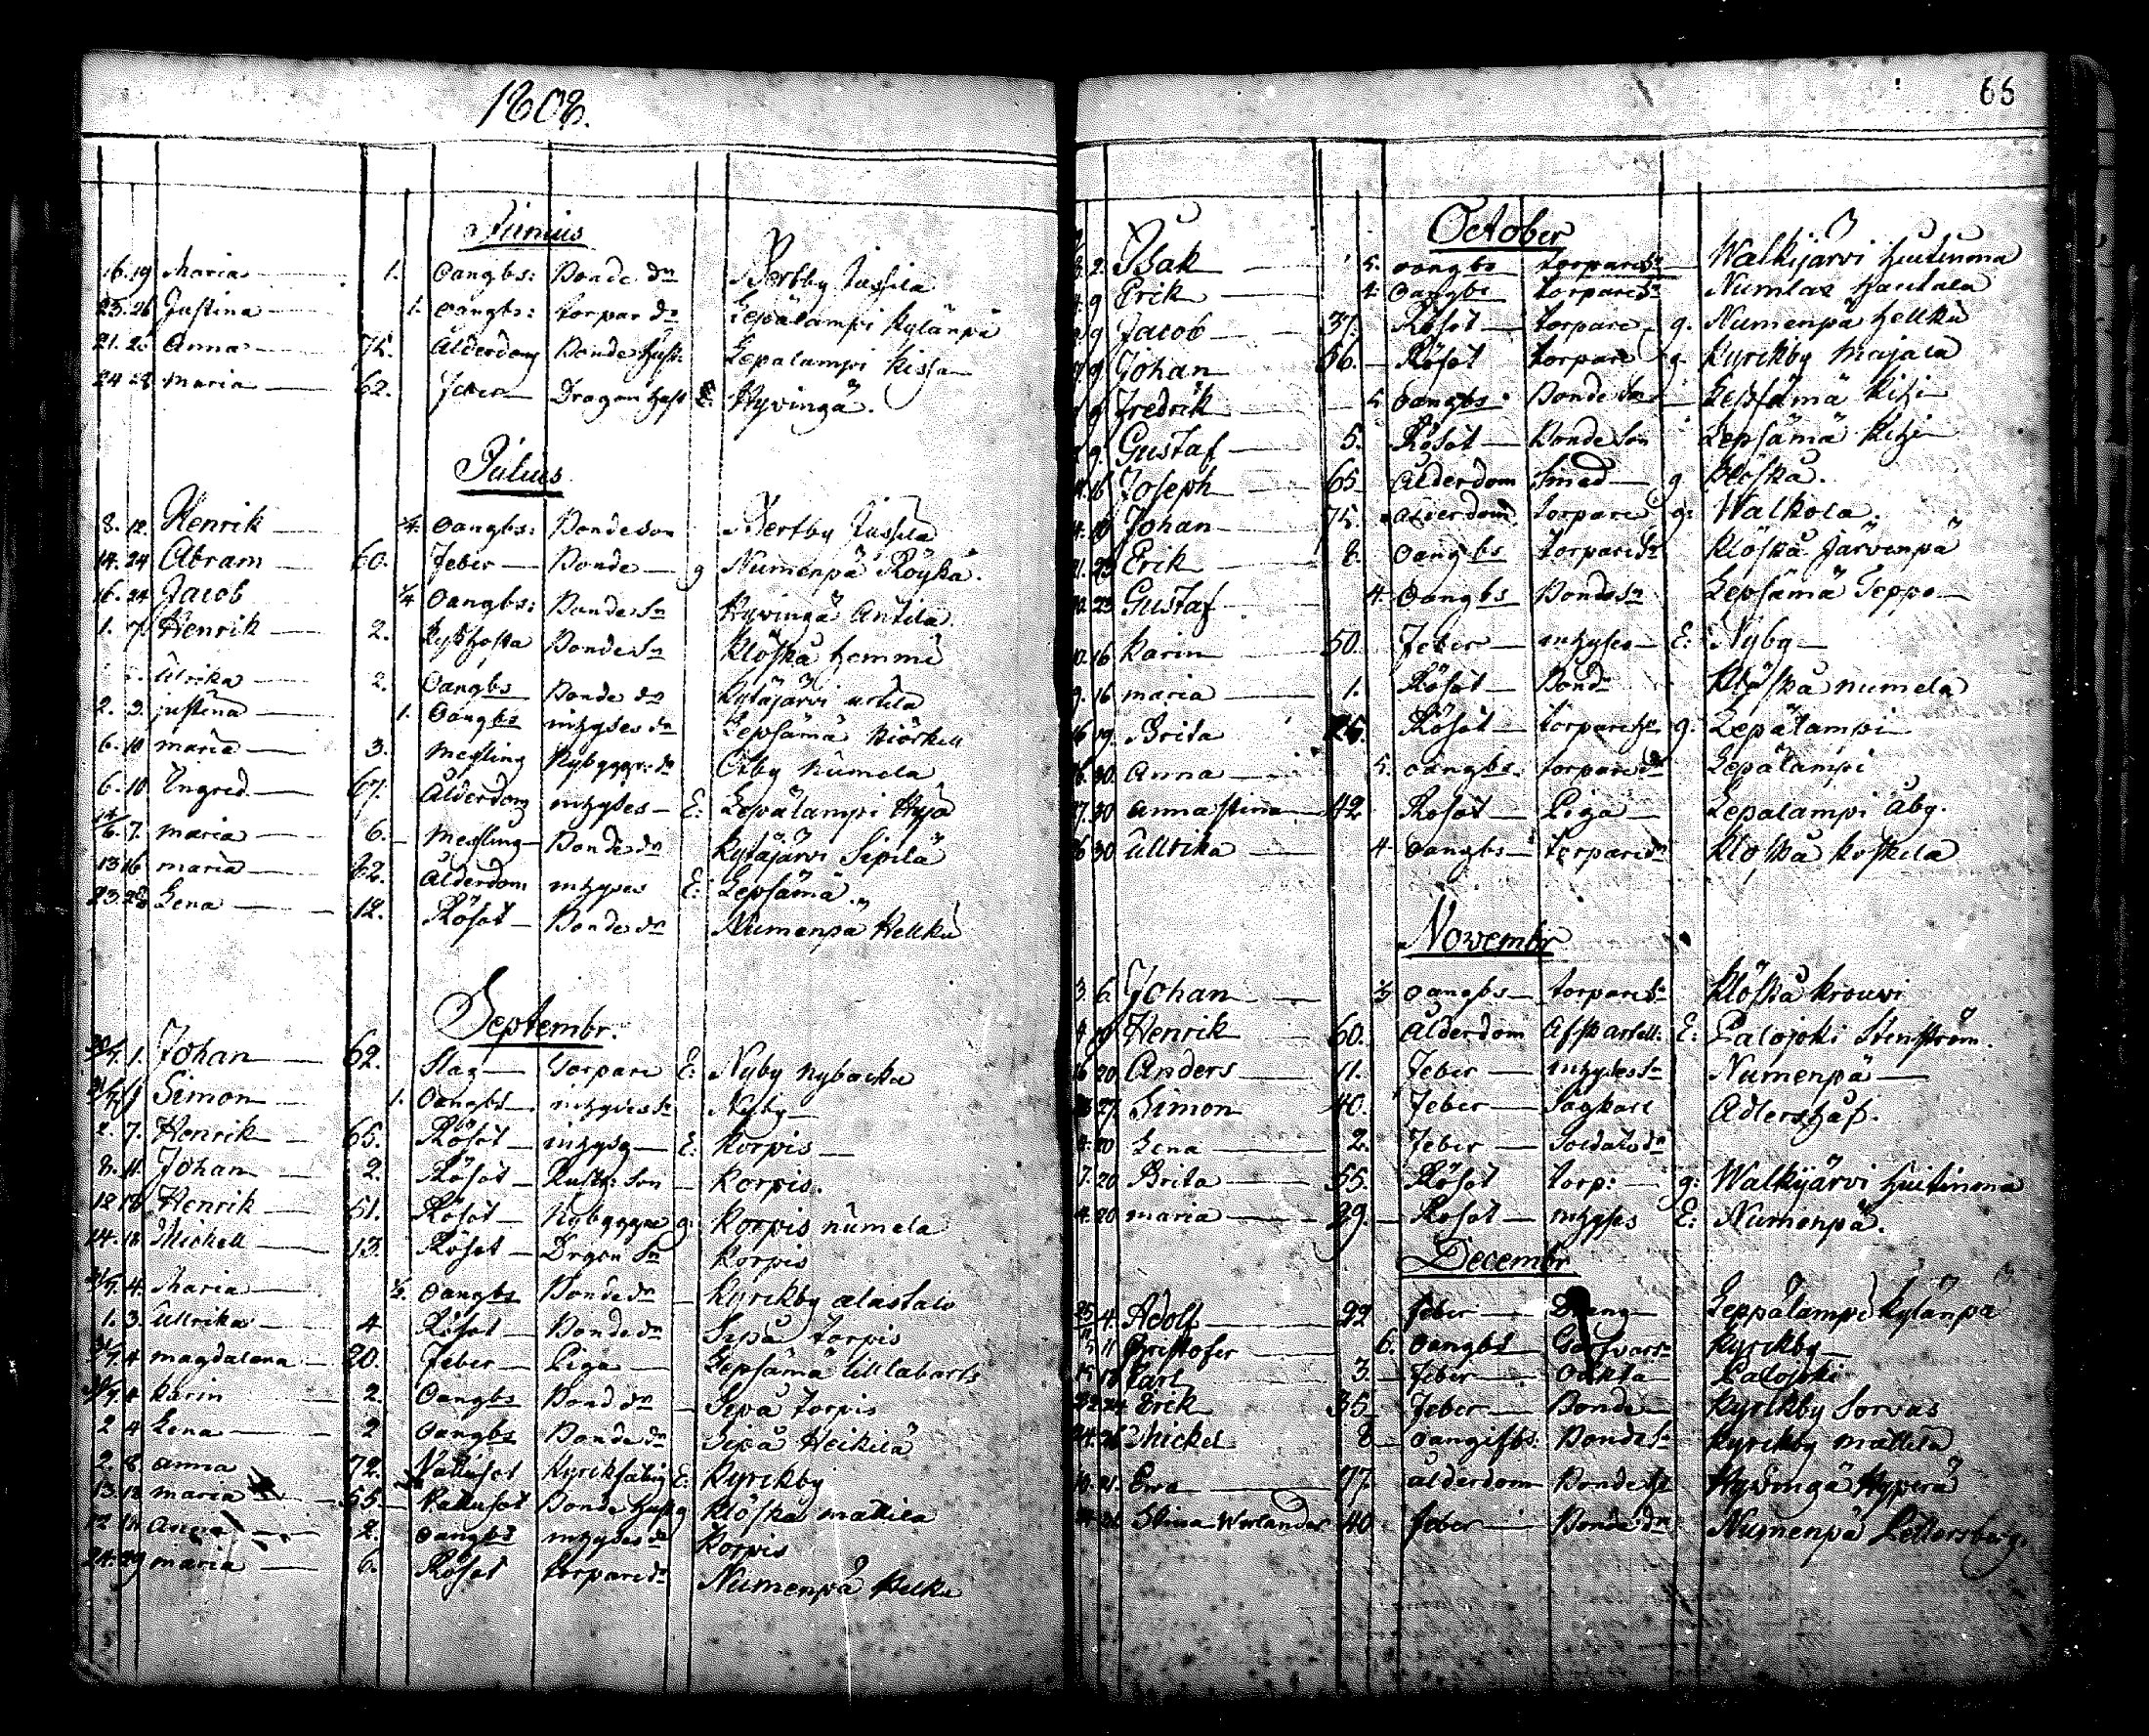 1808.
Junius
16. 19 Maria 1. oangbs: Bonde dr Pertby Jussila
23. 26 Justina 1. oangbs: torpar dr Lepälampi Kylänpä
21. 2 Anna 75. Ålderdom Bonde hust: Lepalampi Kissa
24 28 maria 62. Feber Dragon hust E: Hyvingä.
Julius
8. 12. Henrik oangbs: Bonde son Pertby Jussila
14. 24 Abram 60. Feber Bonde g Numenpä Röykä.
16. 24 Jacob 1/4 oangbs: Bonde Sn Hyvingä Antila.
1. 7. Henrik 2. Kykhosta Bonde Sn Klöfskå hemmi
Ulrika 2. Oangbs Bonde dr Kytäjärvi
2. 3. justina 1. Oangbs inhyses dr Lepsämä Biörkell
6. 10 maria 3. Mesling Nybygge: dr Ötby Numela
6. 10 Ingred 67. Ålderdom inhyses E: Lepälampi Hyjä
7. maria 6. Mesling Bonde dr Kytäjärvi Sipilä
13 16 maria 82. Ålderdom inhyses E: Lepsämä
23. 28 Lena 12. Rösot Bonde dr Numenpä Hellku
Septembr.
1. Johan 62. Slag Torpare E: Nyby nybacka
Simon 1. Oangbs inhyses Sn Nyby
2. 7. Henrik 65. Rösot inhysg E: Korpis
8. 11. Johan 2. Rösot Rusth: Son Korpis.
12 18 Henrik 51. Rösot Nybygge g: Korpis numela
14. 18 Michell 13. Rösot Drgon Sn Korpis
4. Maria 1/2 Oangbs Bonde dr Kyrckby alastalo
1. 3. Ullrika 4 Rösot Bonde dr Sepä torpis
4 magdalena 20. Feber Piga Lepsämä lillabarts
4 Karin 2. Oangbs Bond dr Sepä torpis
2 4 Lena 2 Oangbs Bonde dr Sepä Heikilä
2. 8. anna 72. Vattusot Kyrckfattig E: Kyrckby
13. 18 maria 55. Vattusot Bonde hust g Klöfska mattila
12 18 anna 2. oangbs inhyses dr Korpis
24. 29 maria 6. Rösot torpare dr Numenpä Helku
66
October
2. Isak 5. oangbs torpare Sn Walkijärvi huitinma
9 Erik 4 Oangbs torpare Sn Numlax hautala
9 Jacob 37. Rösot torpare g. Numenpä hellku
9 Johan 56. Rösot torpare g. Kyrckby Majala
9 Fredrik 5 Oangbs: Bonde Son Lepsämä Kihi
9. Gustaf 5. Rösot Bonde Son Lepsämä Kihi
16 Joseph 65 Ålderdom Smed g Klöfskå.
Johan 75. Ålderdom torpare g: Walkola.
21. 23 Erik 8. oangbs torpare Sn Klöfskå Järvenpä
20. 23 Gustaf 4 Oangbs Bonde Sn Lepsämä Seppo
10. 16 Karin 50. Feber inhyses E: Nyby
9. 16 maria 1. Rösot Bond dr Klöfskå numela
16 19. Brita 25. Rösot torpare g: Lepälampi
30. anna 5. oangbs. torpare dr Lepälampi
27. 30 anna stina 42 Rosot Piga Lepälampi åbg.
26 30 Ullrika 4 oangbs torpare dr Klöfskå koskela
Novembr
3. 6. Johan 1/2 oangbs torpare Sn Klöfskå Krouvi
Henrik 60. Ålderdom E: Palojoki Stenström.
16 20 Anders 11. Feber inhyses Sn Numenpä
27. Simon 40. Feber Sagkarl
20 Lena 2. Feber Soldats dr
7. 20 Brita 55. Rösot torp: g: Walkijärvi huitinma
4. 20 maria 29. Rösot inhyses E: Numenpä.
Decembr
4. Adolf 22 Feber Dräng Leppälampi Kylänpä
11 Christofer 6. oangbs Kyrckby
15 18 Carl 3 Feber Oäkta Palojoki
22. 24 Erik 35 Feber Bonde Kyrckby Sorvas
24. 26 Mickel 8 oangifbs: Bonde Sn Kyrckby mattila
21. Ewa 77. ålderdom Bonde h: Hyvingä Hyperä
Stina Werlander 40. Feber Bonde dr Numenpä Pettersberg.